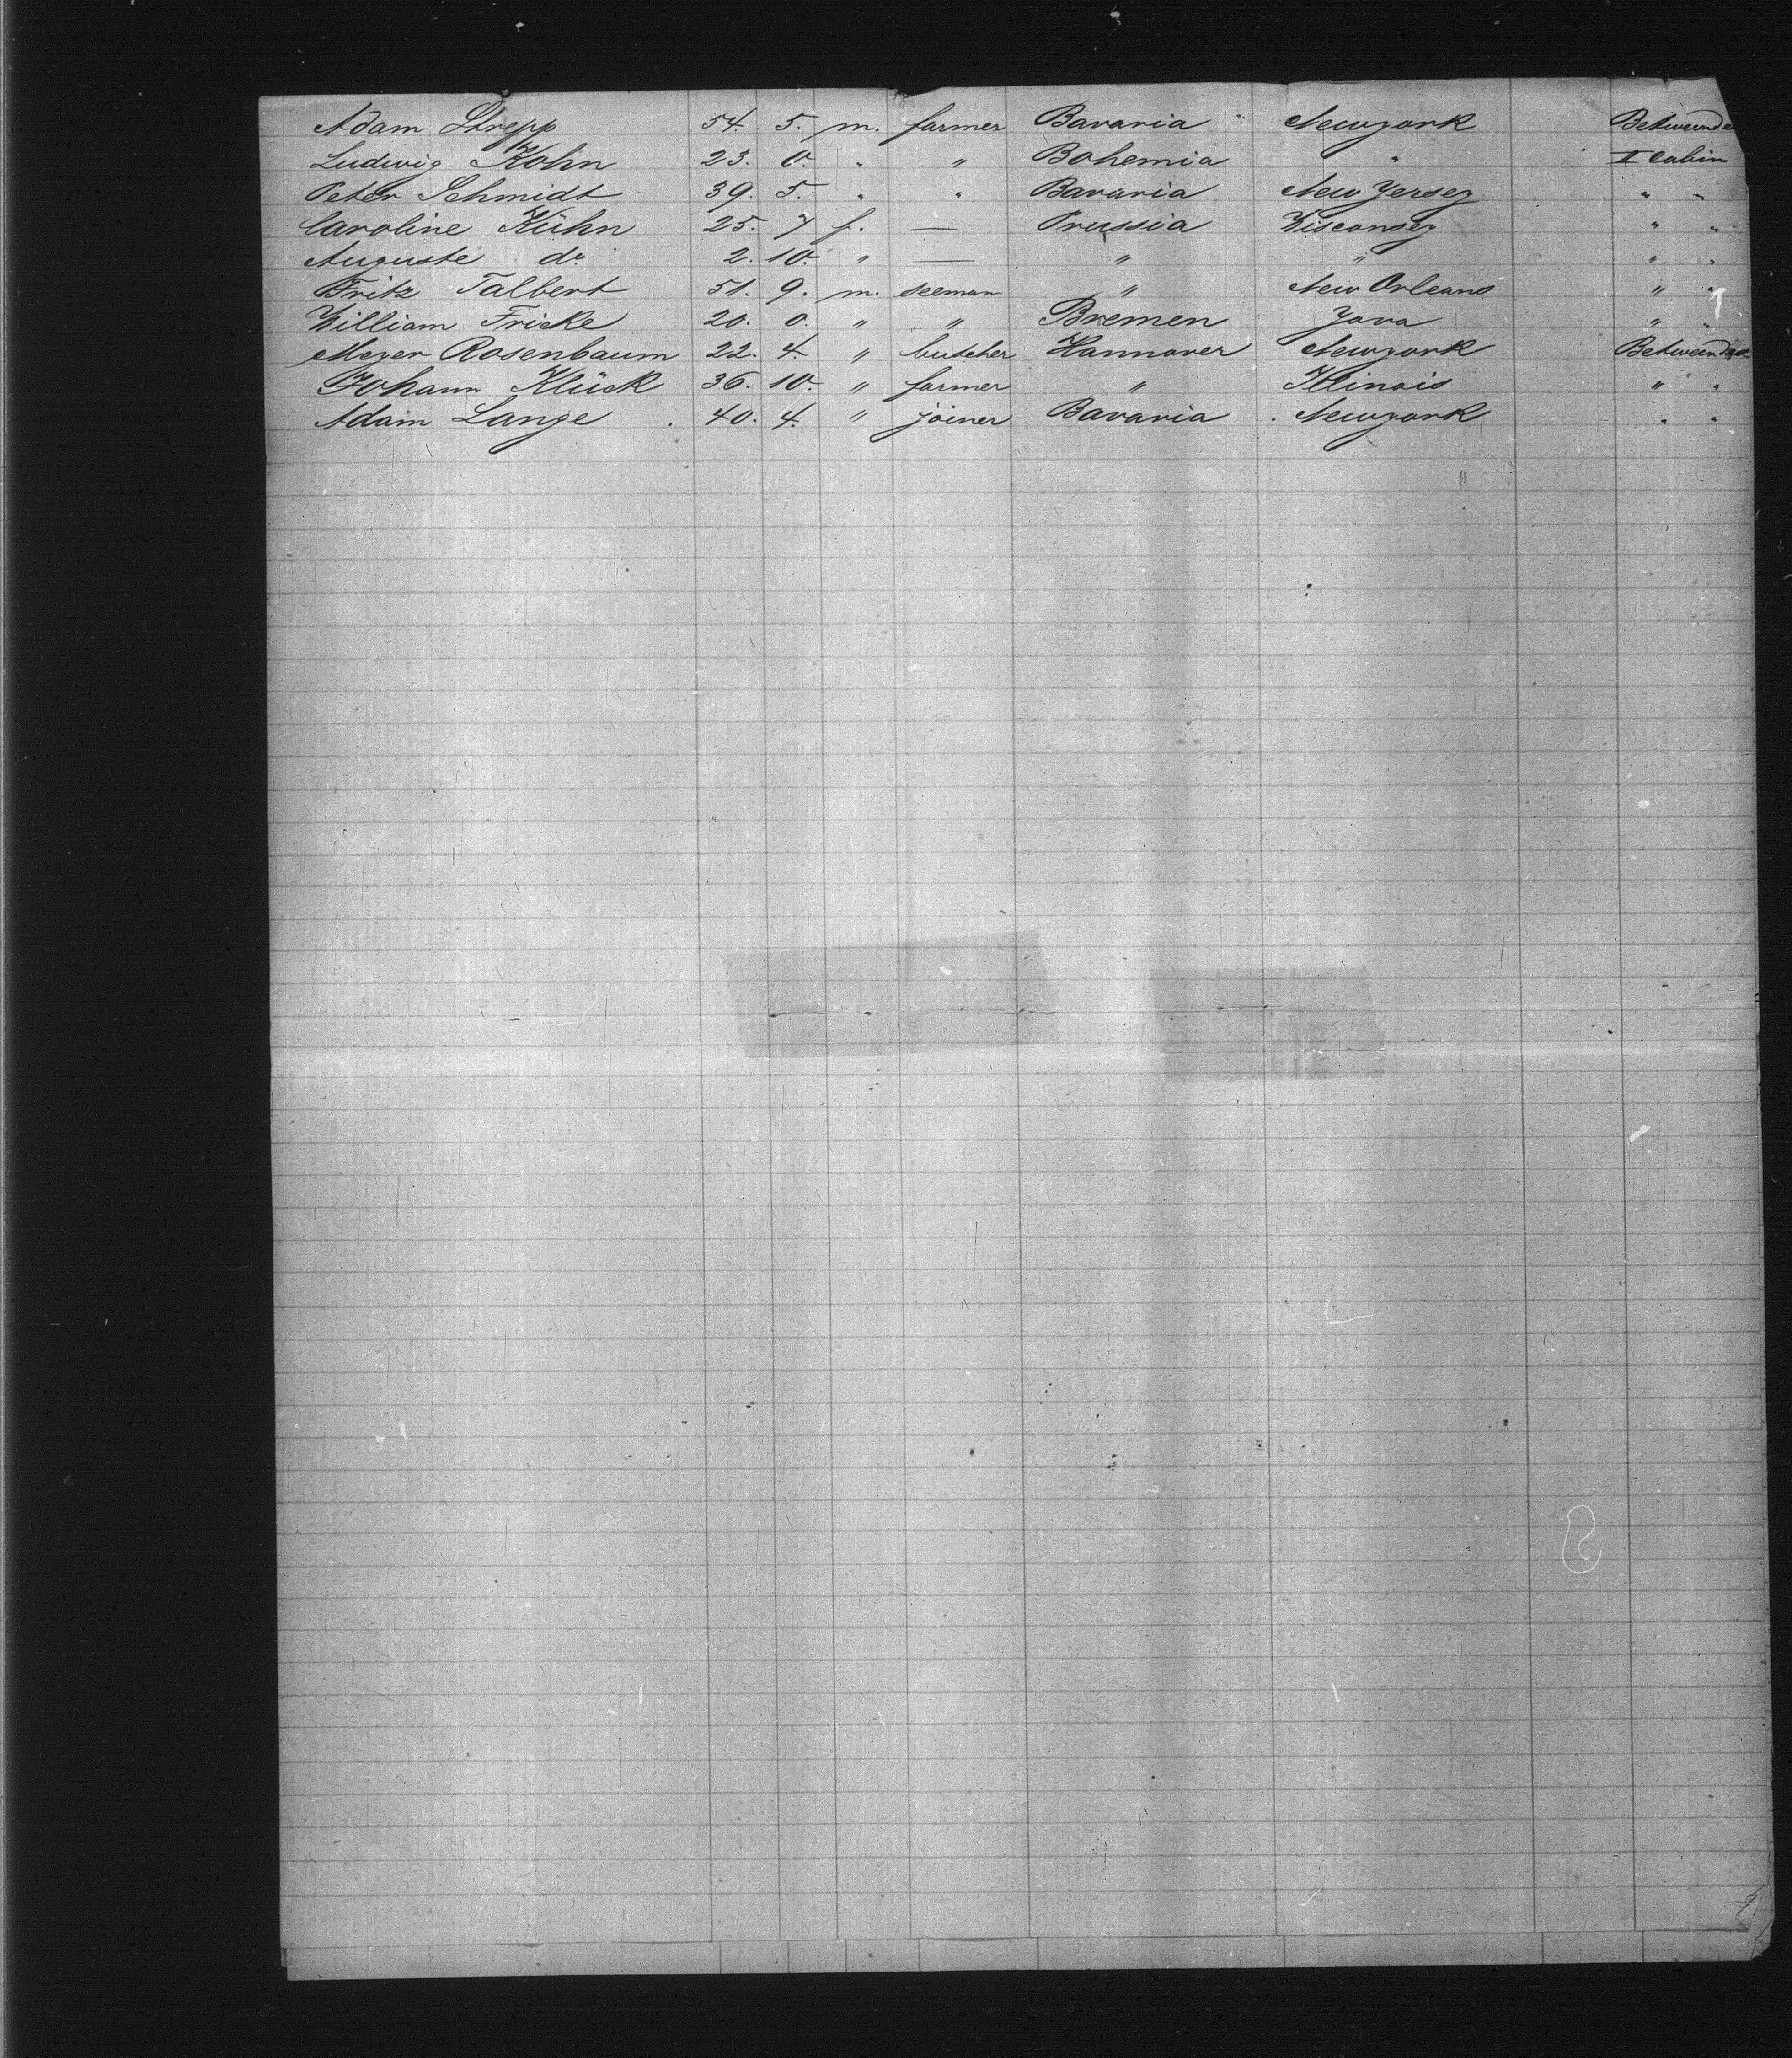 Adam Strepp 54. 5. m. farmer Bavaria " Newyork Betweende
Ludwig Kohn 23. 0. " " Bohemia " II cabin
Peter Schmidt 39. 5. " " Bavaria New Yersey " "
Caroline Kühn 25. 7 f. — Prussia Wisconsey " "
Auguste do 2. 10. " — " " " "
Fritz Talbert 51. 9. m. seeman " New Orleans " "
William Fricke 20. 0. " " Bremen Java " "
Meyer Rosenbaum 22. 4. " butcher Hannover Newyork
Johann Klück 36. 10. " farmer " Illinois " "
Adam Lange . 40. 4. " joiner Bavaria . Newyork " "